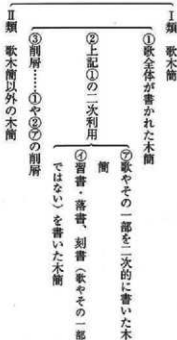 Ⅰ類　歌木簡
①歌全体が書かれた木簡
②上記①の二次利用
㋐歌やその一部を二次的に書いた木
簡
㋑習書・落書、刻書（歌やその一部
ではない）を書いた木簡
③削屑……①や②㋐の削屑
Ⅱ類　歌木簡以外の木簡